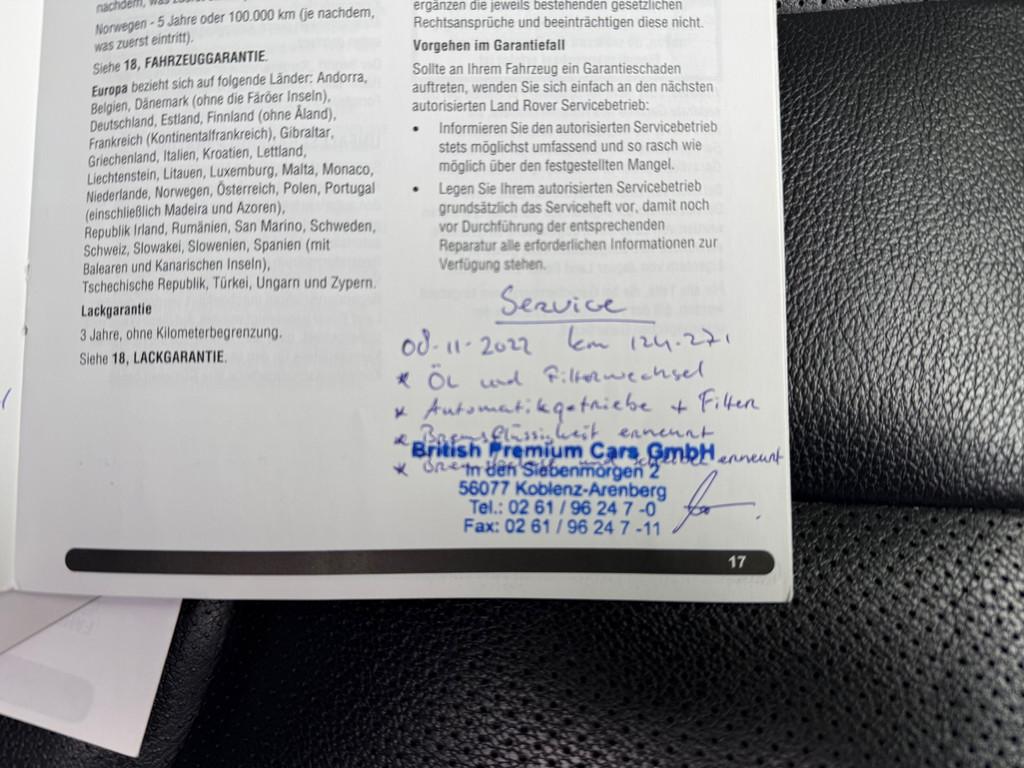 nachdem, was
Norwegen - 5 Jahre oder 100.000 km (je nachdem,
was zuerst eintritt).
Siehe 18, FAHRZEUGGARANTIE.
Europa bezieht sich auf folgende Länder: Andorra,
Belgien, Dänemark (ohne die Färöer Inseln),
Deutschland, Estland, Finnland (ohne Åland),
Frankreich (Kontinentalfrankreich), Gibraltar,
Griechenland, Italien, Kroatien, Lettland,
Liechtenstein, Litauen, Luxemburg, Malta, Monaco,
Niederlande, Norwegen, Österreich, Polen, Portugal
(einschließlich Madeira und Azoren),
Republik Irland, Rumänien, San Marino, Schweden,
Schweiz, Slowakei, Slowenien, Spanien (mit
Balearen und Kanarischen Inseln),
Tschechische Republik, Türkei, Ungarn und Zypern.
Lackgarantie
3 Jahre, ohne Kilometerbegrenzung.
Siehe 18, LACKGARANTIE.
ergänzen die jeweils bestehenden gesetzlichen
Rechtsansprüche und beeinträchtigen diese nicht.
Vorgehen im Garantiefall
Sollte an Ihrem Fahrzeug ein Garantieschaden
auftreten, wenden Sie sich einfach an den nächsten
autorisierten Land Rover Servicebetrieb:
• Informieren Sie den autorisierten Servicebetrieb
stets möglichst umfassend und so rasch wie
möglich über den festgestellten Mangel.
• Legen Sie Ihrem autorisierten Servicebetrieb
grundsätzlich das Serviceheft vor, damit noch
vor Durchführung der entsprechenden
Reparatur alle erforderlichen Informationen zur
Verfügung stehen.
Service
08-11-2022 km 124.271
* Öl und Filterwechsel
* Automatikgetriebe + Filter
* Bremsflüssigkeit erneurt
* und erneurt
British Premium Cars GmbH
In den Siebenmorgen 2
56077 Koblenz-Arenberg
Tel.: 02 61 / 96 24 7 -0
Fax: 02 61 / 96 24 7 -11
17